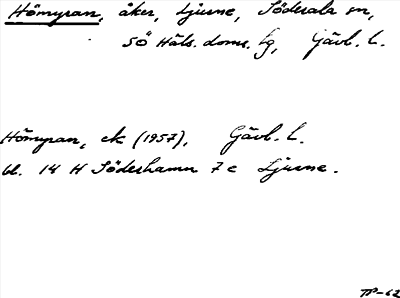 Hömyran, åker, Ljusne, Söderala sn,
SÖ Häls. doms. fg, Gävl. l.
Hömyran, ek (1957), Gävl. l.
bl. 14 H Söderhamn 7 c Ljusne.
TP-62